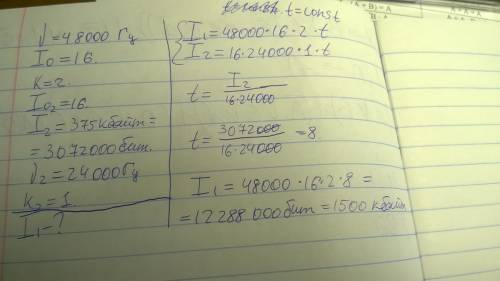 t = const
ν = 48000 Гц
I0 = 16.
K = 2.
I02 = 16.
I2 = 375 кбайт =
= 3072000 бит.
ν2 = 24000 Гц
K2 = 1
I1 - ?
{ I1 = 48000 · 16 · 2 · t
I2 = 16 · 24000 · 1 · t
t = I2 / 16·24000
t = 3072000 / 16·24000 = 8
I1 = 48000 · 16 · 2 · 8 =
= 12288000 бит = 1500 кбайт